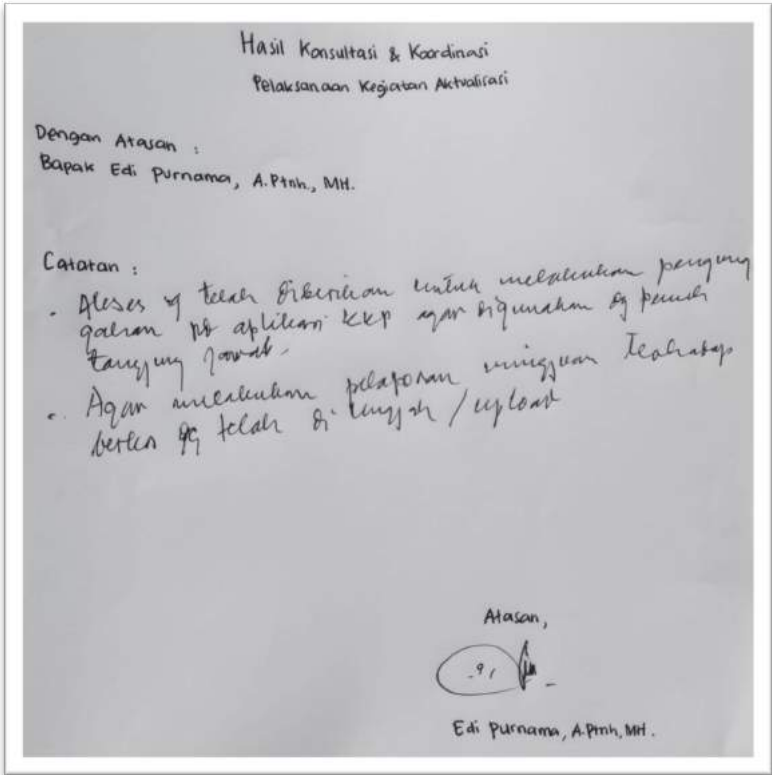 Hasil Konsultasi & Koordinasi
Pelaksanaan Kegiatan Aktualisasi
Dengan Atasan :
Bapak Edi Purnama, A.Ptnh., MH.
Catatan :
• Akses yg telah diberikan untuk melakukan pengung
gahan pd aplikasi KKP agar digunakan dg penuh
tanggung jawab.
• Agar melakukan pelaporan mingguan terhadap
berkas yg telah di unggah / upload
Atasan,
Edi Purnama, A.Ptnh, MH.